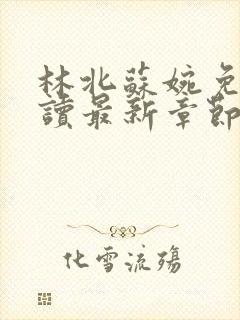 林北蘇婉免
讀最新章節
化雪流殤